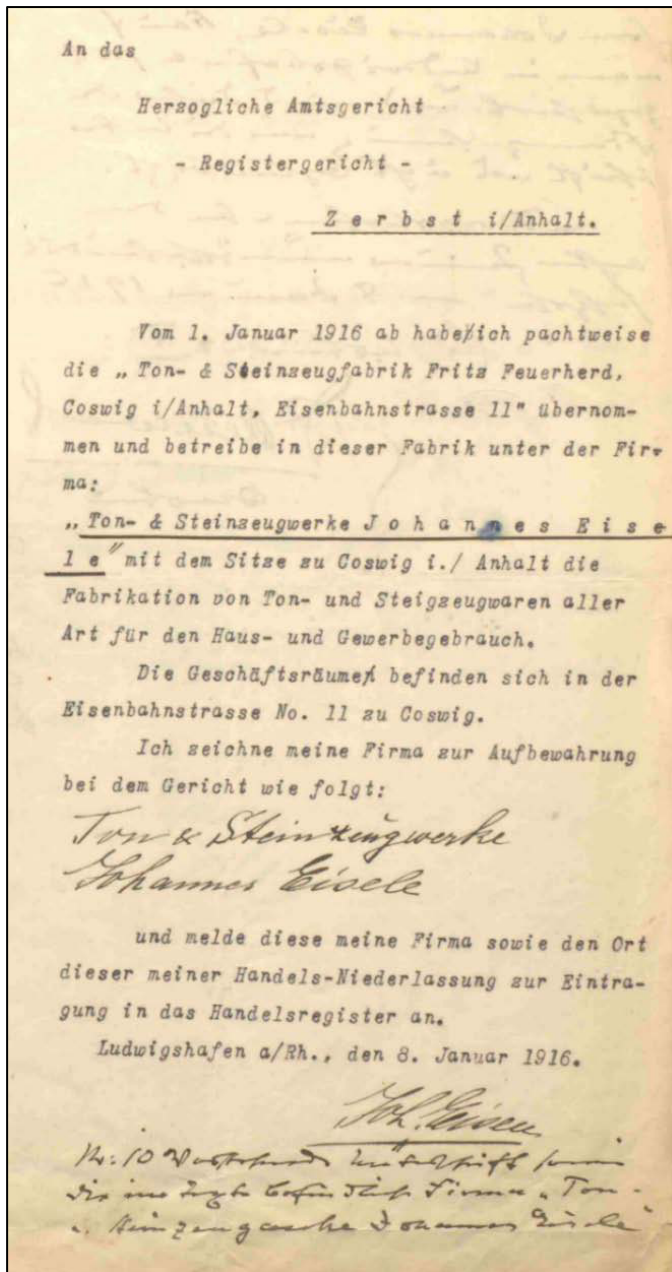 An das
Herzogliche Amtsgericht
- Registergericht -
Z e r b s t i/Anhalt.
Vom 1. Januar 1916 ab habe/ich pachtweise
die „ Ton- & Steinzeugfabrik Fritz Feuerherd,
Coswig i/Anhalt, Eisenbahnstrasse 11" übernom-
men und betreibe in dieser Fabrik unter der Fir-
ma:
„Ton- & Steinzeugwerke J o h a n n e s E i s e
l e" mit dem Sitze zu Coswig i./ Anhalt die
Fabrikation von Ton- und Steigzeugwaren aller
Art für den Haus- und Gewerbegebrauch.
Die Geschäftsräume befinden sich in der
Eisenbahnstrasse No. 11 zu Coswig.
Ich zeichne meine Firma zur Aufbewahrung
bei dem Gericht wie folgt:
Ton & Steinzeugwerke
Johannes Eisele
und melde diese meine Firma sowie den Ort
dieser meiner Handels-Niederlassung zur Eintra-
gung in das Handelsregister an.
Ludwigshafen a/Rh., den 8. Januar 1916.
Joh. Eisele
No: 10 Unterschrift
die im Texte befindliche Firma „Ton-
u. Steinzeugwerke Johannes Eisele"